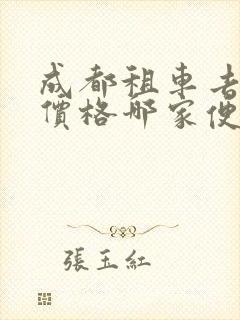 成都租車去
價格哪家便
張玉紅